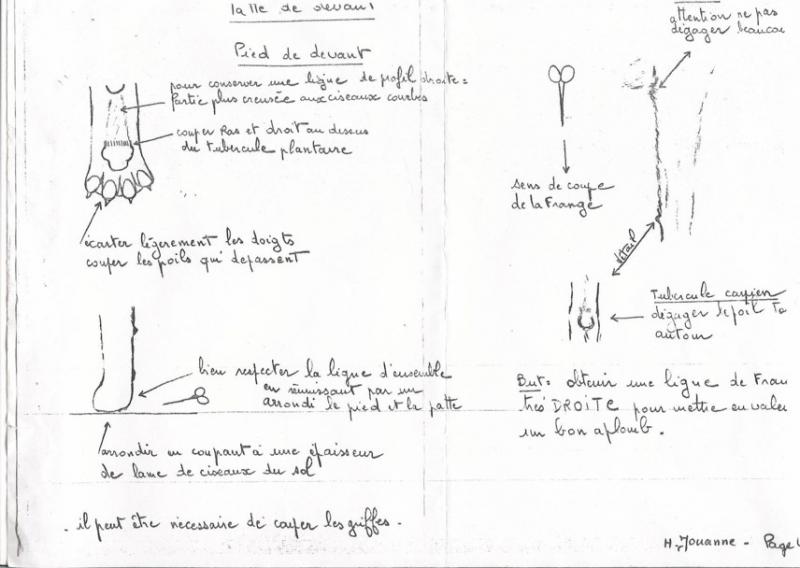 Patte de devant
Pied de devant
pour conserver une ligne de profil droite =
Partie plus creusée aux ciseaux courbes
couper Ras et droit au dessus
du tubercule plantaire
écarter légèrement les doigts
couper les poils qui dépassent
bien respecter la ligne d'ensemble
en réunissant par un
arrondi le pied et la patte
arrondir en coupant à une épaisseur
de lame de ciseaux du sol
. il peut être nécessaire de couper les griffes .
attention ne pas
dégager beaucou
sens de coupe
de la Frange
détail
Tubercule carpien
dégager le poil To
autour
But = obtenir une ligne de Fran
très DROITE pour mettre en valeu
un bon aplomb .
H. Jouanne - Page